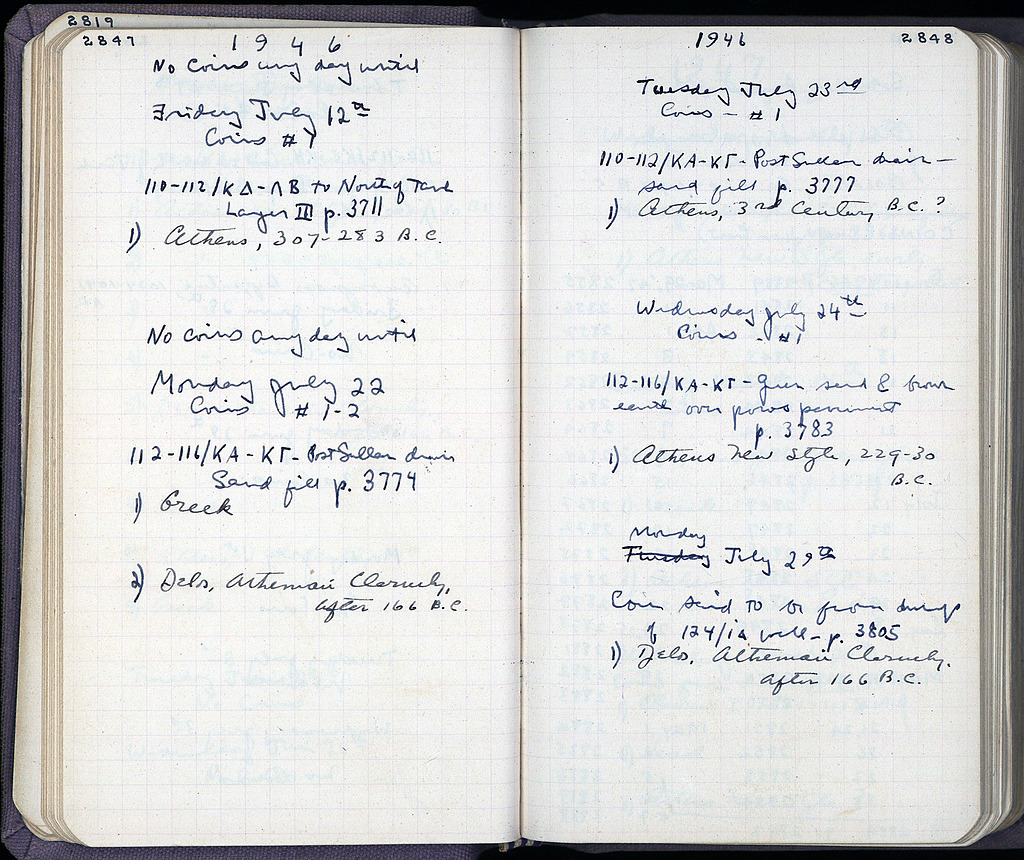 2819
2847
1946
No coins any day until
Friday July 12th
Coins #1
110-112/ΚΔ-ΛΒ to North of Tank
Layer III p. 3711
1) Athens, 307-283 B.C.
No coins any day until
Monday July 22
Coins #1-2
112-116/ΚΑ-ΚΓ-Post Sullan drain
Sand fill p. 3774
1) Greek
2) Delos, Athenian Cleruchy,
after 166 B.C.
1946
2848
Tuesday July 23rd
Coins - #1
110-112/ΚΑ-ΚΓ-Post Sullan drain-
sand fill p. 3777
1) Athens, 3rd Century B.C.?
Wednesday July 24th
Coins - #1
112-116/ΚΑ-ΚΓ-Green sand & brown
earth over poros pavement
p. 3783
1) Athens New Style, 229-30
B.C.
Monday
Tuesday July 29th
Coin said to be from dump
of 124/ΙΑ well- p. 3805
1) Delos, Athenian Cleruchy,
after 166 B.C.